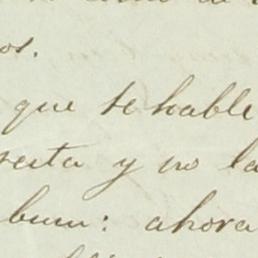 os.
que te hable
y no la
bum: ahora